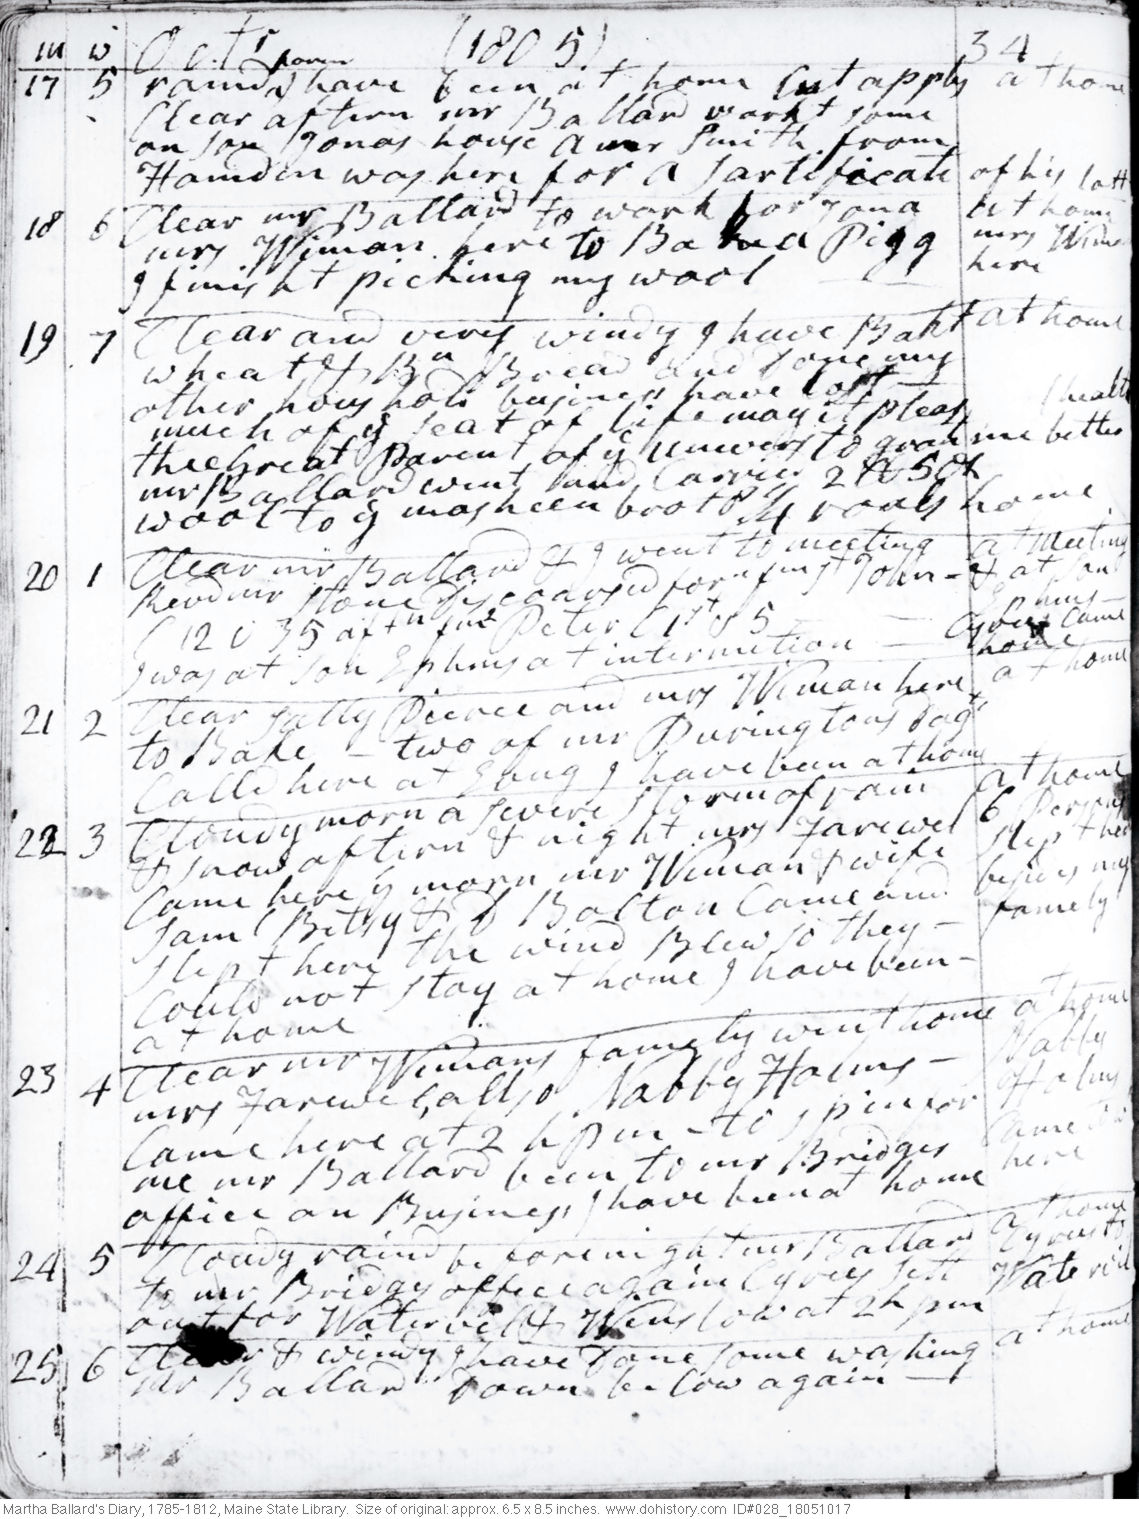 m w Octr (1805) 34
17 5 raind foren I have been at home Cut apples at home
Clear aftern mr Ballard workt some
on son Jonas house a mr Smith from
Hamden was here for a sartificate of his lott
18 6 Clear mr Ballard to work for Jona at home
mrs Wiman here to Bake a Pigg mrs Wiman
I finisht picking my wool here
19 7 Clear and very windy I have Bakt at home
wheat & Bn Bread and done my
other household business have lost
much of ye seat of life may it pleas health
the Great Parent of ye univers to grant me better
mr Ballard went and Carried 2 lb 5 of
wool to ye masheen brot rools home
20 1 Clear mr Ballard & I went to meeting at Meeting
Revd mr Stone discoarsed forn from 1st John & at son
C 12 v 35 aftn from 2 Peter C 1st v 5 Ephms
I was at son Ephms at intermition Cyrus Came
home
21 2 Clear Sally Peirce and mrs Wiman here at home
to Bake two of mr Purringtons dagts
Calld here at Evng I have been at home
22 3 Cloudy morn a severe storm of rain at home
& snow aftern & night mrs Farewel 6 Persons
Came here ys morn mr Wiman & wife slept here
Saml Betsy & Bolton Came and besids my
slept here the wind Blew so they famely
Could not stay at home I have been
at home
23 4 Clear mr Wimans famely went home at home
mrs Farewel allso Nabby Holms Nabby
Came here at 2 h pm to spin for Holms
me mr Ballard been to mr Bridges Came
office on Business I have been at home here
24 5 Cloudy raind before night mr Ballard at home
to mr Bridgs office again Cyrus sett Cyrus to
out for Watervil & Winslow at 2 h pm Watervil
25 6 Clear & windy I have done some washing at home
mr Ballard down below again
Martha Ballard's Diary, 1785-1812, Maine State Library. Size of original: approx. 6.5 x 8.5 inches. www.dohistory.com ID#028_18051017